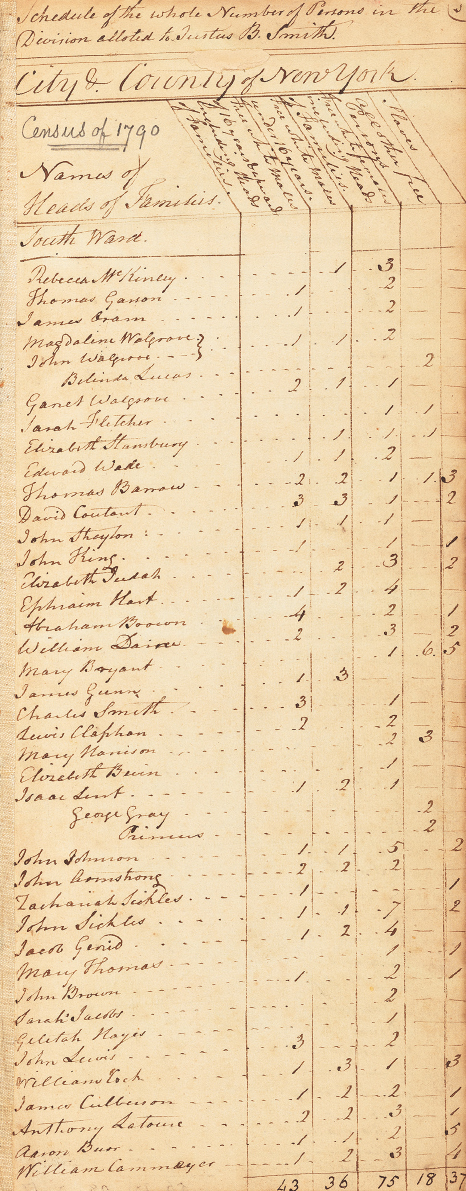 Schedule of the whole Number of Persons in the
Division alloted to Justus B. Smith.
City & County of New York.
Census of 1790
Names of
Heads of Families.
Free white Males
of 16 years & upward
including Heads
of Families.
Free white Males
under 16 years
Free white Females
including Heads
of Families.
All other free
Persons
Slaves
South Ward.
Rebecca McKinley 1 3
Thomas Gason 1 2
James Oram 1 2
Magdaline Walgrove }
John Walgrove } 1 1 2
Belinda Lucas 2
Garret Walgrove 2 1 1
Sarah Fletcher 1 1
Elizabeth Stansbury 1 1 1
Edward Wade 1 1 2
Thomas Barrow 2 2 1 1 3
David Coutant 3 3 1 2
John Sheylon 1 1 1
John King 1 1 1
Elizabeth Judah 2 3 2
Ephraim Hart 1 2 4
Abraham Brown 4 2 1
William Dawe 2 3 2
Mary Bryant 1 6 5
James Gunn 1 3
Charles Smith 3 1
Lewis Claphan 2 2
Mary Harrison 2 3
Elizabeth Bevin 1
Isaac Lent 1 2 1
George Gray 2
Primus 2
John Johnson 1 1 5 2
John Armstrong 2 2 2
Zachariah Sickles 1 1
John Sickles 1 1 7 2
Jacob Gerid 1 2 4
Mary Thomas 1 1
John Brown 1 2 1
Sarah Jacobs 2
Gilitah Hayes 1
John Lewis 3 2
William Tock 1 3 1 3
James Culberson 1 2 2 1
Anthony Latour 2 2 3 1
Aaron Burr 1 1 2 5
William Cammeyer 1 2 3 4
43 36 75 18 37